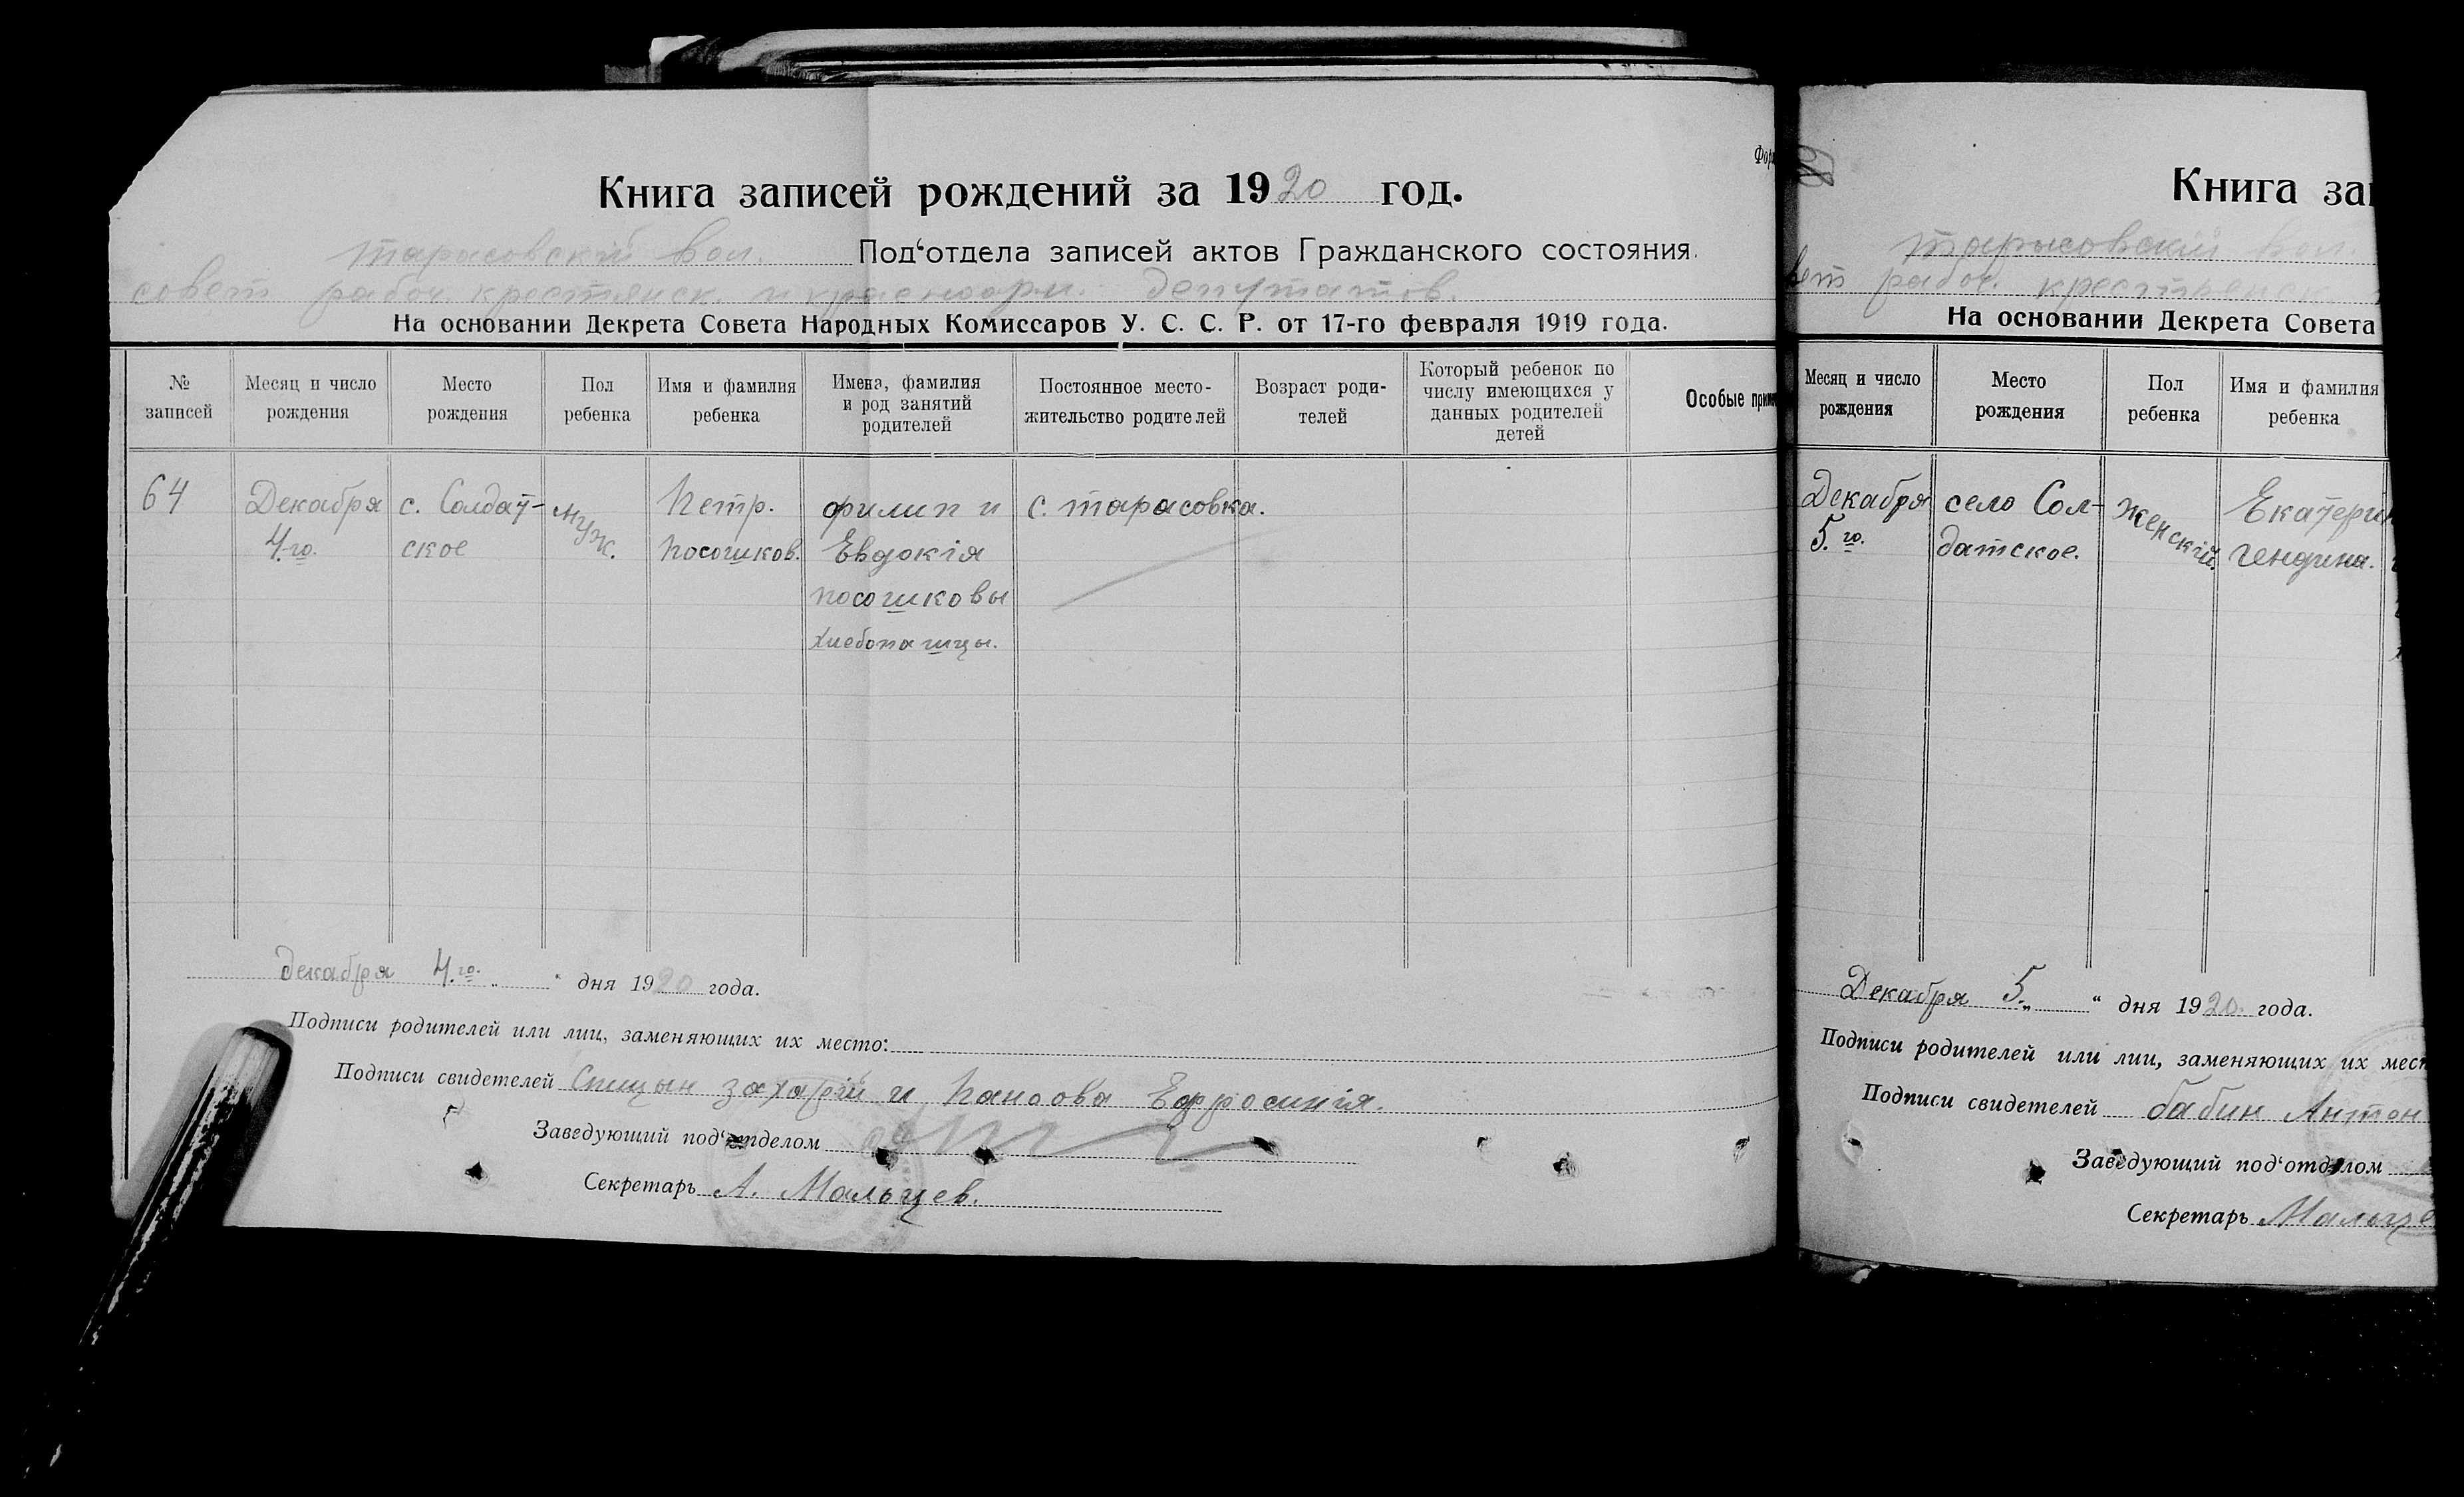 Книга записей рождений за 1920 год.
тарасовский вол. Под‘отдела записей актов Гражданского состояния.
совет рабоч. крестянск. и красноарм. депутатов.
На основании Декрета Совета Народных Комиссаров У. С. С. Р. от 17-го февраля 1919 года.
№ записей
Месяц и число рождения
Место рождения
Пол ребенка
Имя и фамилия ребенка
Имена, фамилия и род занятий родителей
Постоянное местожительство родителей
Возраст родителей
Который ребенок по числу имеющихся у данных родителей детей
Особые
64
Декабря
4-го.
с. Солдат-
ское
муж.
Петр.
Посошков.
филип и
Евдокія
посошковы
хлебопашцы.
с. тарасовка.
декабря 4.го. „ “ дня 1920 года.
Подписи родителей или лиц, заменяющих их место:
Подписи свидетелей Спицын захарій и Ефросинія.
Заведующий под‘отделом
Секретарь А. Мальцев.
Книга
тарасовский вол.
рабоч. крестьянск.
На основании Декрета Совета
Месяц и число рождения
Место рождения
Пол ребенка
Имя и фамилия ребенка
Декабря
5.го.
село Сол-
датское.
женскій.
Екатерин
Гендина.
Декабря 5. „ “ дня 1920. года.
Подписи родителей или лиц, заменяющих их мест
Подписи свидетелей бабин Антон
Заведующий под‘отделом
Секретарь Мальце